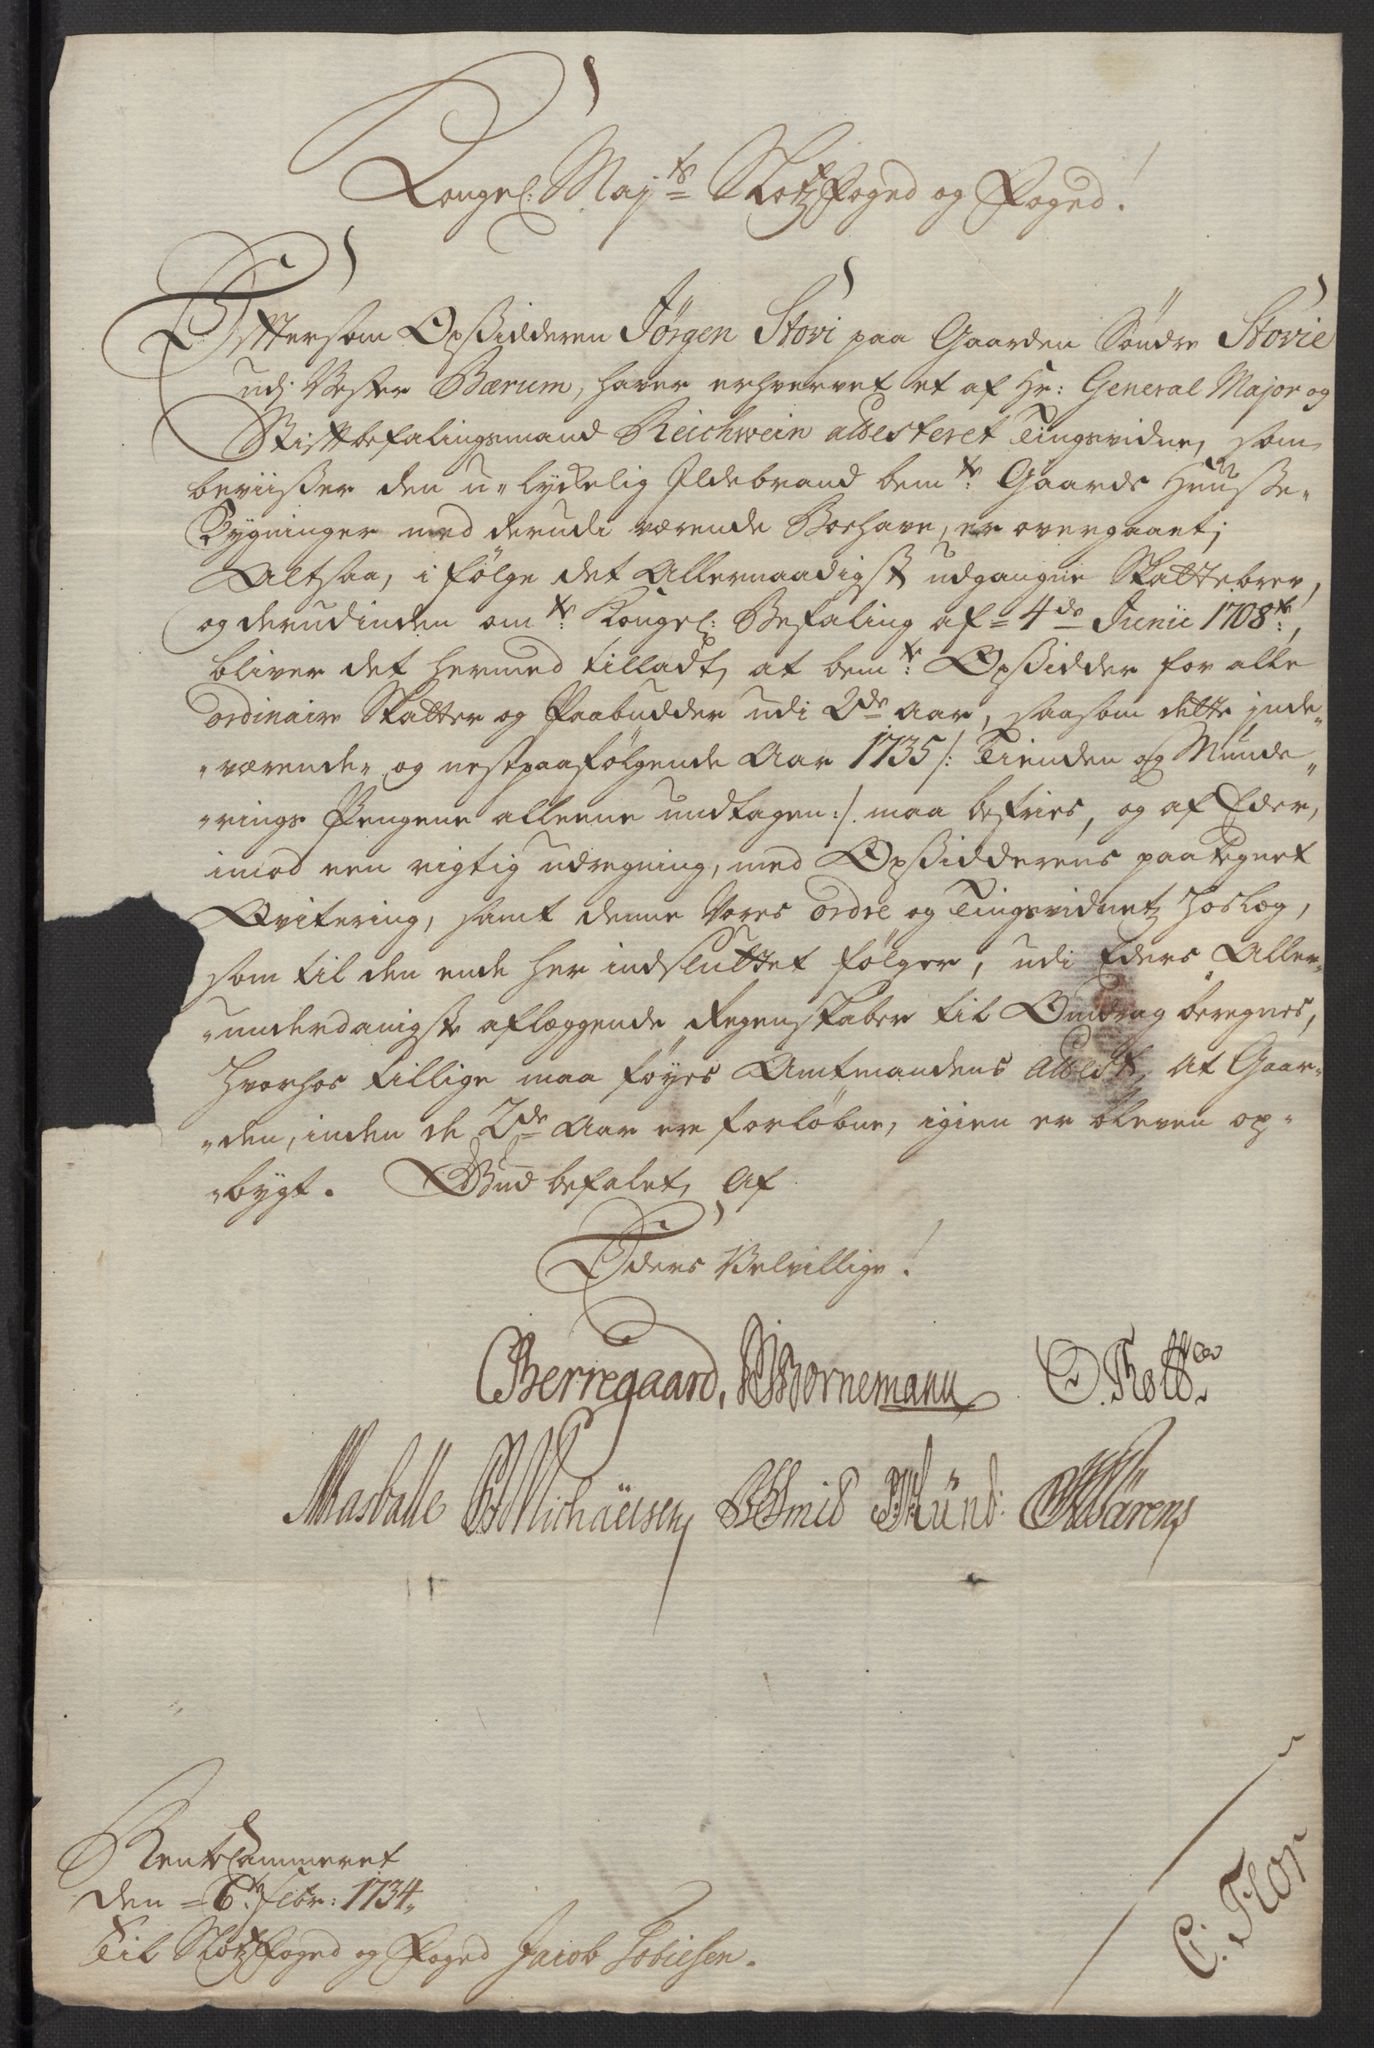 Kongel: Majts Slotzfoged og Foged!
Eftersom Opsidderen Jörgen Stovi paa Gaarden Söndre Stovie
udj Vester Bærum, haver erhvervet et af Hr: General Major og
Stiftbefalingsmand Reichwein attesteret Tingsvidne, som
beviisser den u-lyckelig Ildebrand bemte: Gaards Huusse-
Bygninger med derudi værende Boehave, er overgaaet;
Altsaa, i følge det Allernaadigst udgangne Skattebrev,
og derudinden omte: Kongel: Befaling af 4de Junii 1708te:,
bliver det hermed tilladt, at bemte: Opsidder for alle
ordinaire Skatter og Paabudder udi 2de Aar, saasom dette inde-
-værende og nestpaafølgende Aar 1735 /: Tienden og Munde-
-rings Pengene alleene undtagen :/ maa befries, og af Eder,
imod een rigtig udregning, med Opsidderens paategnet
Qvitering, samt denne Vores ordre og Tingsvidnetz Hoslæg,
som til den ende her indsluttet følger, udi Eders Aller-
-underdanigste aflæggende Regenskaber til Omdrag beregnes,
Hvorhos tillige maa føyes Amtmandens Attest, at Gaar-
-den, inden de 2de Aar ere forløbne, igien er bleven op-
-bygt. Gud befalet, Af
Eders Velvillige!
CBerregaard, Bornemann O. Thott
Masballe Michäelsen Smid Münd: Wärens
RenteCammeret
den 6te: Febr: 1734,
Til Slotzfoged og Foged Jacob Tobiesen.
C: Flor